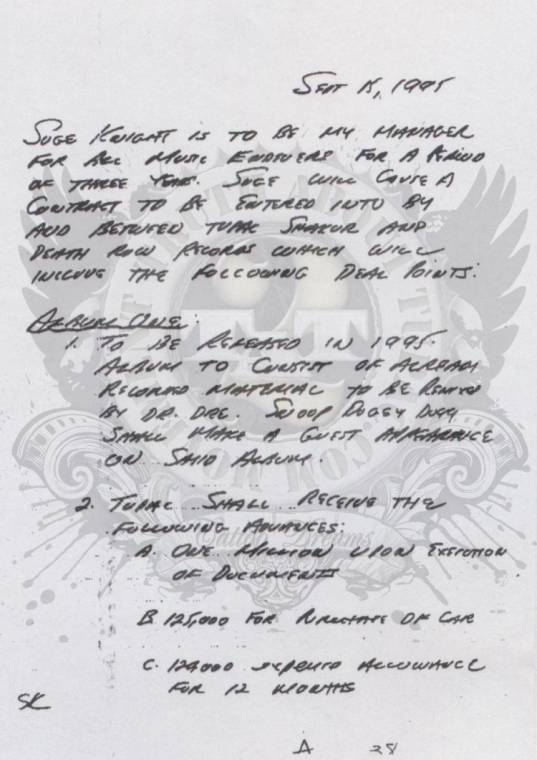 SEPT 15, 1995
SUGE KNIGHT IS TO BE MY MANAGER
FOR ALL MUSIC ENDEVERS FOR A PERIOD
OF THREE YEARS. SUGE WILL CAUSE A
CONTRACT TO BE ENTERED INTO BY
AND BETWEEN TUPAC SHAKUR AND
DEATH ROW RECORDS WHICH WILL
INCLUDE THE FOLLOWING DEAL POINTS:
ALBUM ONE:
1. TO BE RELEASED IN 1995.
ALBUM TO CONSIST OF ALREADY
RECORDED MATERIAL TO BE REMIXED
BY DR. DRE. SNOOP DOGGY DOGG
SHALL MAKE A GUEST APPEARANCE
ON SAID ALBUM.
2. TUPAC SHALL RECEIVE THE
FOLLOWING ADVANCES:
A. ONE MILLION UPON EXECUTION
OF DOCUMENT
B. 125,000 FOR PURCHASE OF CAR
C. 120,000 EXPENSE ALLOWANCE
FOR 12 MONTHS
SK